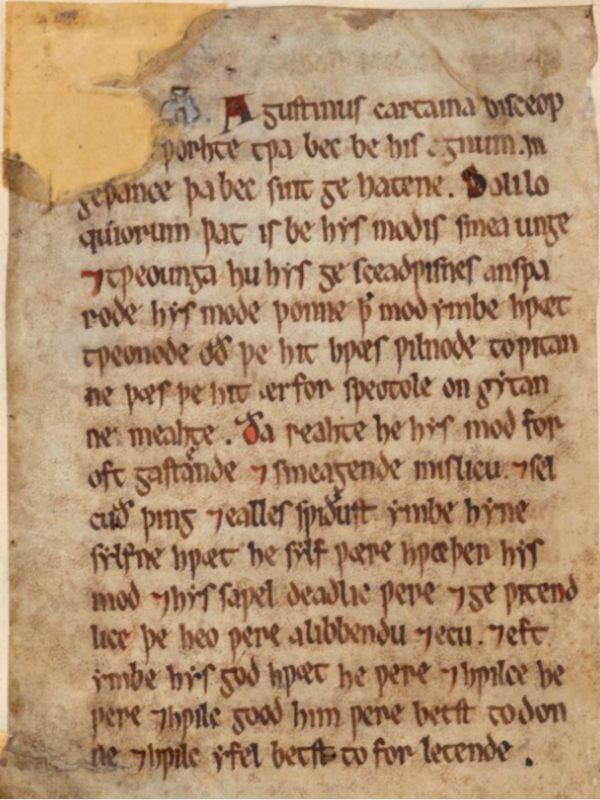 Agustinus cartaina bisceop
ƿorhte tƿa bec be his egnum in
geþance þa bec sint ge hatene. Solilo
quiorum þat is be hys modis smea unge
⁊ tƿeounga hu hys ge sceadƿisnes anspa
rode hys mode þonne ꝥ mod ymbe hƿæt
tƿeonode oð þe hit hƿæs ƿilnode to ƿitan
ne þæs þe hit ær for sƿeotole on gytan
ne meahte. Ða reahte he hys mod for
oft gastande ⁊ smeagende mislicu ⁊ sel
cuð þing ⁊ ealles sƿiðust ymbe hyne
sylfne hƿæt he sylf ƿære hƿæþer hys
mod ⁊ hys saƿel deadlic ƿere ⁊ ge ƿitend
lice þe heo ƿere alibbendu ⁊ ecu. ⁊ eft
ymbe hys god hƿæt he ƿere ⁊ hƿilce he
ƿere ⁊ hƿilc good him ƿere betst to don
ne ⁊ hƿilc yfel betst to for letende.